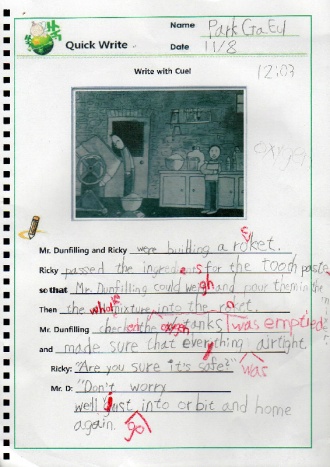 Quick Write
Name Park GaEul
Date 11/8
Write with Cue!
12:03
oxygen
Mr. Dunfilling and Ricky were building a roket.
Ricky passed the ingred e s for the tooth paste
so that Mr. Dunfilling could weigh and pour them in the
Then the whole mixture into the
Mr. Dunfilling checked the oxygen tanks was emptied
and made sure that everything airtight
was
Ricky: "Are you sure it's safe?"
Mr. D: "Don't worry
we'll just into orbit and home
again. go